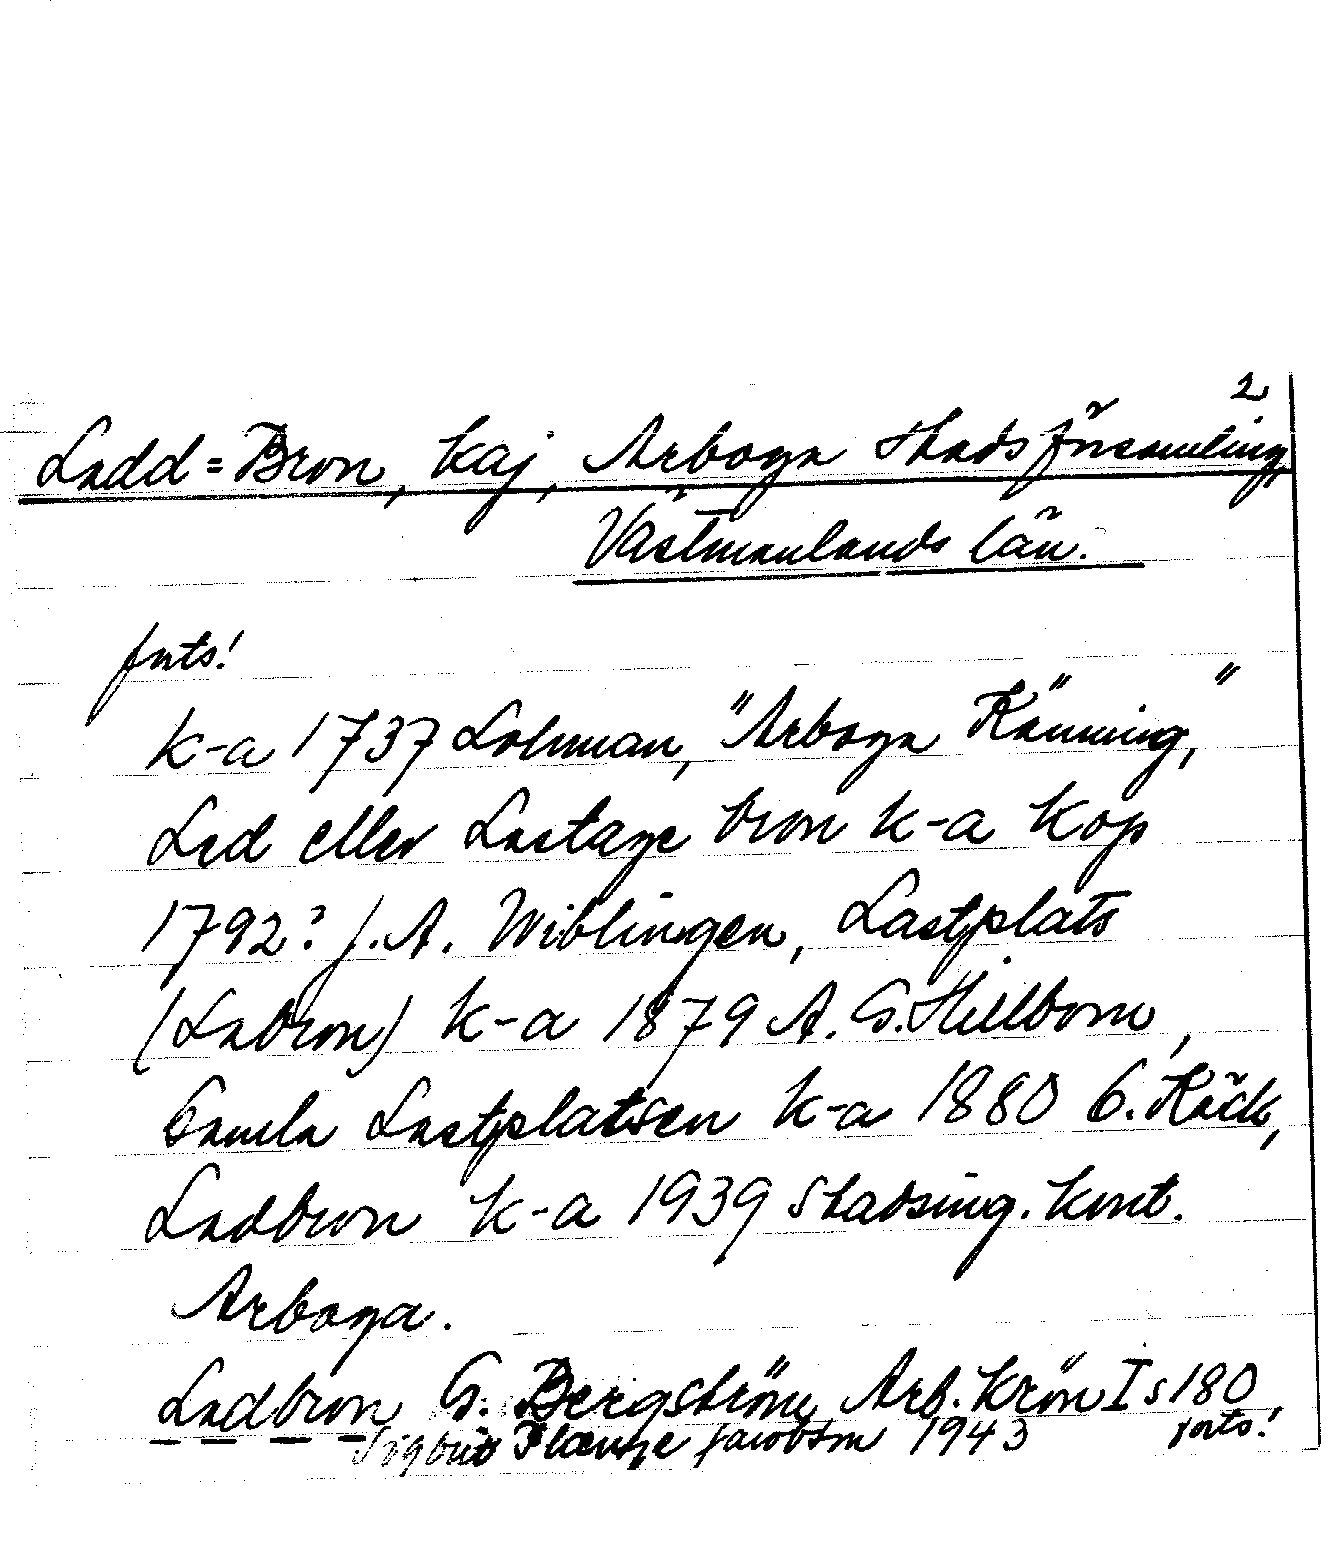 2
Ladd=Bron, kaj, Arboga Stadsförsamling,
Västmanlands län.
forts!
k-a 1737 Lohman, "Arboga Känning,"
Lad eller Lastage bron k-a kop
1792? J.A. Wiblingen, Lastplats
(Labron) k-a 1879 A. G. Hellbom,
Gamla Lastplatsen k-a 1880 G. Räck,
Ladbron k-a 1939 Stadsing. kont.
Arboga.
Ladbron G. Bergström, Arb. Krön I s 180
Sigbrit Plænge Jacobson 1943 forts!